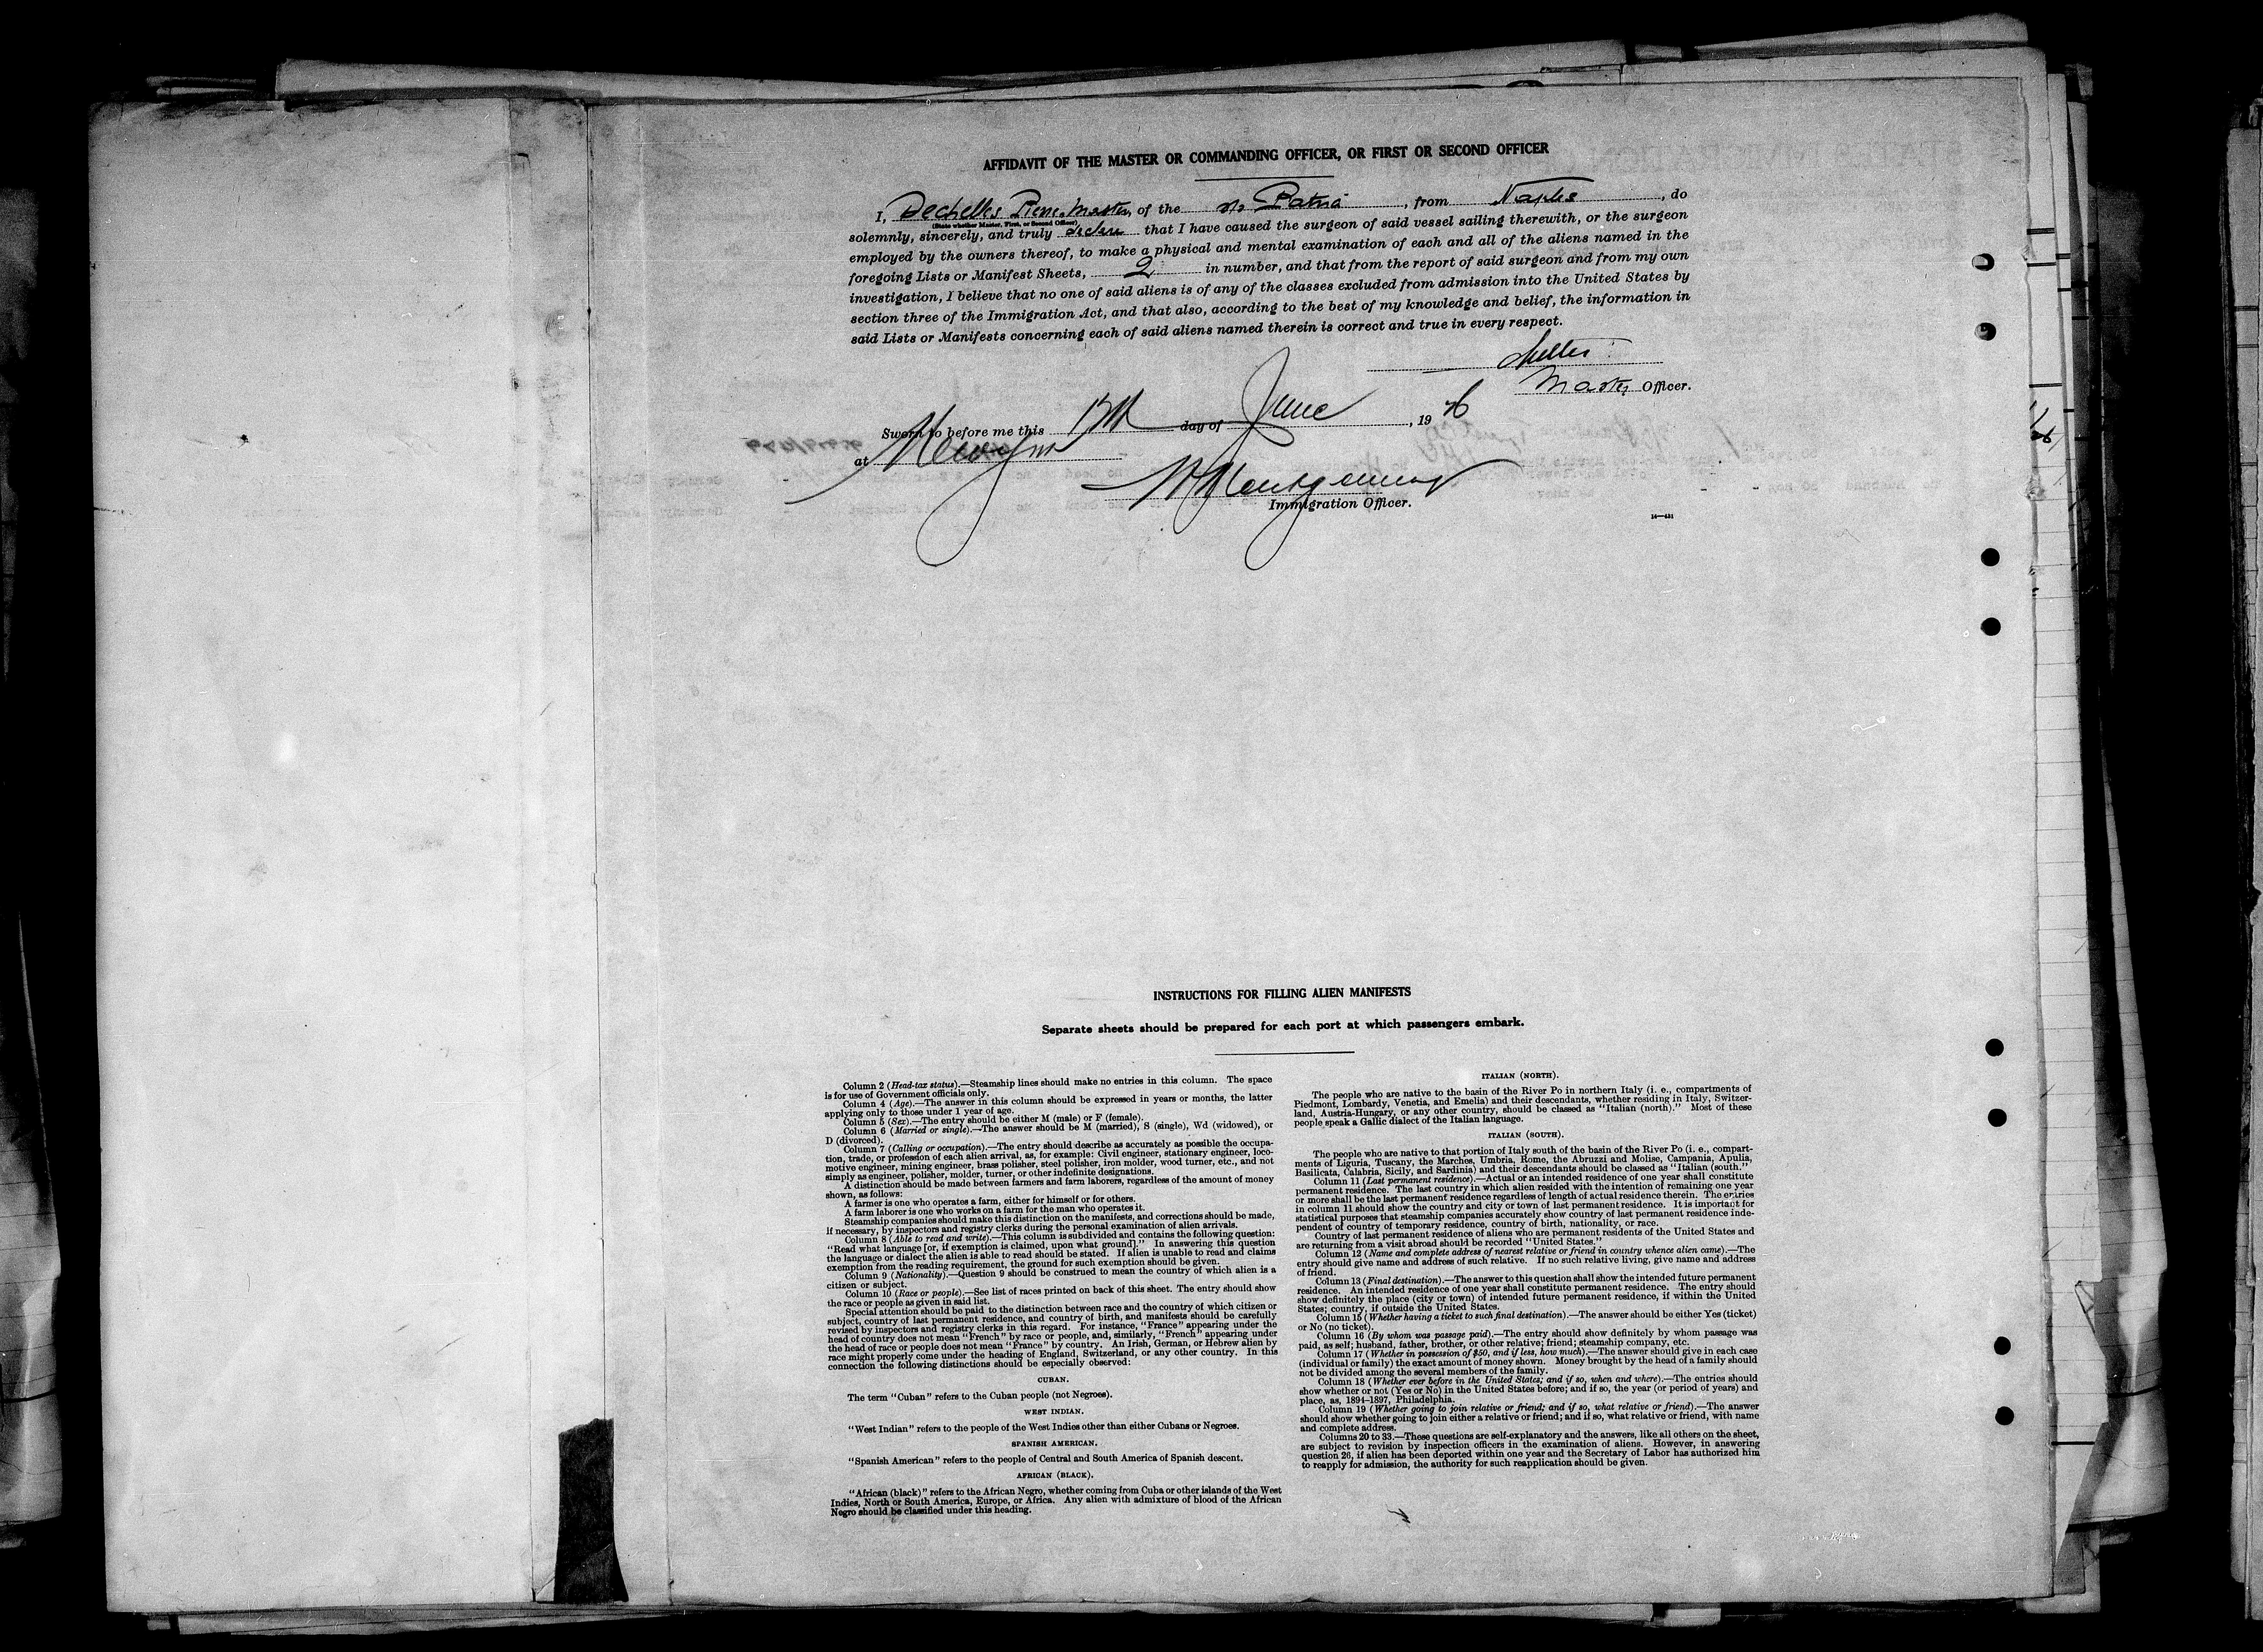 AFFIDAVIT OF THE MASTER OR COMMANDING OFFICER, OR FIRST OR SECOND OFFICER
I, Dechelles Pierre Master, of the s/s Patria, from Naples, do
(State whether Master, First, or Second Officer)
solemnly, sincerely, and truly declare that I have caused the surgeon of said vessel sailing therewith, or the surgeon
employed by the owners thereof, to make a physical and mental examination of each and all of the aliens named in the
foregoing Lists or Manifest Sheets, 2 in number, and that from the report of said surgeon and from my own
investigation, I believe that no one of said aliens is of any of the classes excluded from admission into the United States by
section three of the Immigration Act, and that also, according to the best of my knowledge and belief, the information in
said Lists or Manifests concerning each of said aliens named therein is correct and true in every respect.
Master Officer.
Sworn to before me this day of June, 19
at
Montgomery
Immigration Officer.
INSTRUCTIONS FOR FILLING ALIEN MANIFESTS
Separate sheets should be prepared for each port at which passengers embark.
Column 2 (Head-tax status).—Steamship lines should make no entries in this column. The space
is for use of Government officials only.
Column 4 (Age).—The answer in this column should be expressed in years or months, the latter
applying only to those under 1 year of age.
Column 5 (Sex).—The entry should be either M (male) or F (female).
Column 6 (Married or single).—The answer should be M (married), S (single), Wd (widowed), or
D (divorced).
Column 7 (Calling or occupation).—The entry should describe as accurately as possible the occupa-
tion, trade, or profession of each alien arrival, as, for example: Civil engineer, stationary engineer, loco-
motive engineer, mining engineer, brass polisher, steel polisher, iron molder, wood turner, etc., and not
simply as engineer, polisher, molder, turner, or other indefinite designations.
A distinction should be made between farmers and farm laborers, regardless of the amount of money
shown, as follows:
A farmer is one who operates a farm, either for himself or for others.
A farm laborer is one who works on a farm for the man who operates it.
Steamship companies should make this distinction on the manifests, and corrections should be made,
if necessary, by inspectors and registry clerks during the personal examination of alien arrivals.
Column 8 (Able to read and write).—This column is subdivided and contains the following question:
"Read what language [or, if exemption is claimed, upon what ground]." In answering this question
the language or dialect the alien is able to read should be stated. If alien is unable to read and claims
exemption from the reading requirement, the ground for such exemption should be given.
Column 9 (Nationality).—Question 9 should be construed to mean the country of which alien is a
citizen or subject.
Column 10 (Race or people).—See list of races printed on back of this sheet. The entry should show
the race or people as given in said list.
Special attention should be paid to the distinction between race and the country of which citizen or
subject, country of last permanent residence, and country of birth, and manifests should be carefully
revised by inspectors and registry clerks in this regard. For instance, "France" appearing under the
head of country does not mean "French" by race or people, and, similarly, "French" appearing under
the head of race or people does not mean "France" by country. An Irish, German, or Hebrew alien by
race might properly come under the heading of England, Switzerland, or any other country. In this
connection the following distinctions should be especially observed:
CUBAN.
The term "Cuban" refers to the Cuban people (not Negroes).
WEST INDIAN.
"West Indian" refers to the people of the West Indies other than either Cubans or Negroes.
SPANISH AMERICAN.
"Spanish American" refers to the people of Central and South America of Spanish descent.
AFRICAN (BLACK).
"African (black)" refers to the African Negro, whether coming from Cuba or other islands of the West
Indies, North or South America, Europe, or Africa. Any alien with admixture of blood of the African
Negro should be classified under this heading.
ITALIAN (NORTH).
The people who are native to the basin of the River Po in northern Italy (i. e., compartments of
Piedmont, Lombardy, Venetia, and Emelia) and their descendants, whether residing in Italy, Switzer-
land, Austria-Hungary, or any other country, should be classed as "Italian (north)." Most of these
people speak a Gallic dialect of the Italian language.
ITALIAN (SOUTH).
The people who are native to that portion of Italy south of the basin of the River Po (i. e., compart-
ments of Liguria, Tuscany, the Marches, Umbria, Rome, the Abruzzi and Molise, Campania, Apulia,
Basilicata, Calabria, Sicily, and Sardinia) and their descendants should be classed as "Italian (south."
Column 11 (Last permanent residence).—Actual or an intended residence of one year shall constitute
permanent residence. The last country in which alien resided with the intention of remaining one year
or more shall be the last permanent residence regardless of length of actual residence therein. The entries
in column 11 should show the country and city or town of last permanent residence. It is important for
statistical purposes that steamship companies accurately show country of last permanent residence inde-
pendent of country of temporary residence, country of birth, nationality, or race.
Country of last permanent residence of aliens who are permanent residents of the United States and
are returning from a visit abroad should be recorded "United States."
Column 12 (Name and complete address of nearest relative or friend in country whence alien came).—The
entry should give name and address of such relative. If no such relative living, give name and address
of friend.
Column 13 (Final destination).—The answer to this question shall show the intended future permanent
residence. An intended residence of one year shall constitute permanent residence. The entry should
show definitely the place (city or town) of intended future permanent residence, if within the United
States; country, if outside the United States.
Column 15 (Whether having a ticket to such final destination).—The answer should be either Yes (ticket)
or No (no ticket).
Column 16 (By whom was passage paid).—The entry should show definitely by whom passage was
paid, as self; husband, father, brother, or other relative; friend; steamship company, etc.
Column 17 (Whether in possession of $50, and if less, how much).—The answer should give in each case
(individual or family) the exact amount of money shown. Money brought by the head of a family should
not be divided among the several members of the family.
Column 18 (Whether ever before in the United States; and if so, when and where).—The entries should
show whether or not (Yes or No) in the United States before; and if so, the year (or period of years) and
place, as, 1894–1897, Philadelphia.
Column 19 (Whether going to join relative or friend; and if so, what relative or friend).—The answer
should show whether going to join either a relative or friend; and if so, what relative or friend, with name
and complete address.
Columns 20 to 33.—These questions are self-explanatory and the answers, like all others on the sheet,
are subject to revision by inspection officers in the examination of aliens. However, in answering
question 26, if alien has been deported within one year and the Secretary of Labor has authorized him
to reapply for admission, the authority for such reapplication should be given.